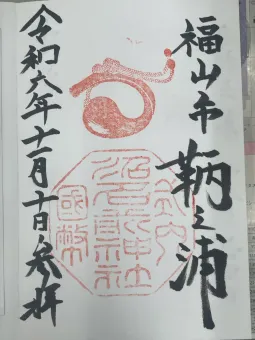 福山市
鞆之浦
式内
沼名前神社
國幣
令和六年十一月十日参拝